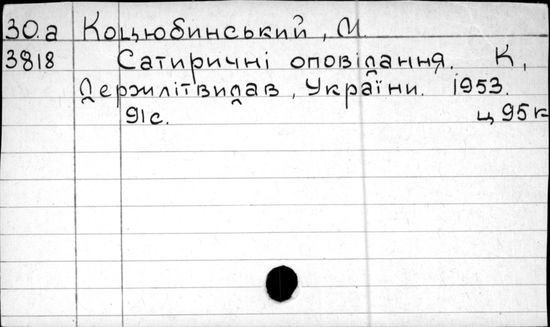 30.а Коцюбинський, М.
3818 Сатиричні оповідання. К,
Держлітвидав, України. 1953.
91с. ц 95к